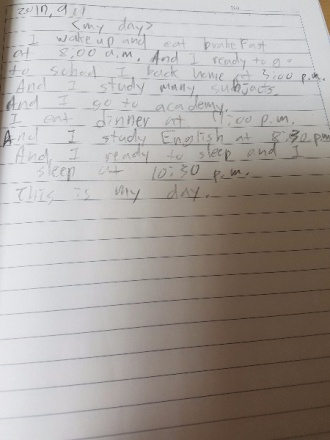 2017, 9
<my day>
I wake up and eat brakefast
at 8:00 a.m. And I ready to go
to school I back home at 3:00 p.m.
And I study many subjects
And I go to academy.
I eat dinner at :00 p.m.
And I study English at 8:30 p.m
And I ready to sleep and I
sleep at 10:30 p.m.
This is my day.